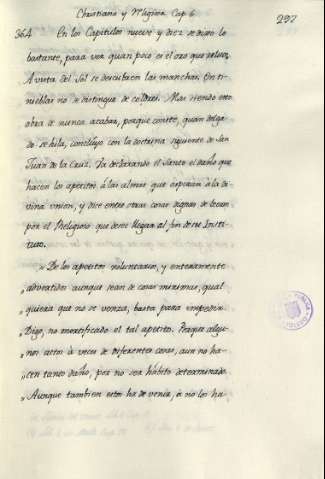 Christiano y Religioso Cap. 6.
297
364 En los Capitulos nueve y diez se dixo lo
bastante, para ver quan poco es el oro que reluce.
A vista del Sol se descubren las manchas. En ti-
nieblas no se distingue de colores. Mas siendo esto
obra de nunca acabar, porque conste, quan delga-
do se hila, concluyo con la doctrina siguiente de San
Juan de la Cruz. Va declarando el Santo el daño que
hacen los apetitos á las almas que aspiran á la di-
vina union, y dice entre otras cosas dignas de leerse
por el Religioso que desee llegar al fin de su Insti-
tuto.
„ De los apetitos voluntarios, y enteramente
„ advertidos aunque sean de cosas minimas, qual
„ quiera que no se venza, basta para impedir.
„ Digo, no mortificado el tal apetito. Porque algu-
„ nos actos á veces de diferentes cosas, aun no ha-
„ cen tanto daño, por no ser hábito determinado.
„ Aunque tambien estos ha de venir, á no los ha-